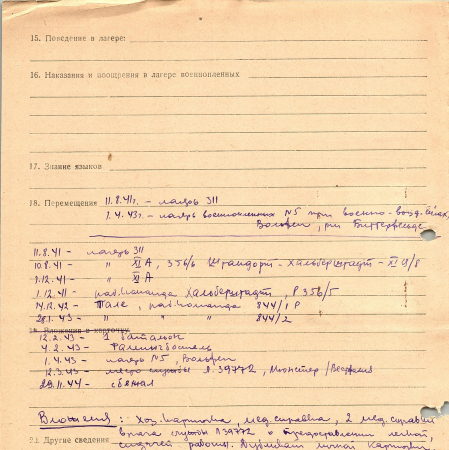 15. Поведение в лагере:
16. Наказания и поощрения в лагере военнопленных
17. Знание языков
18. Перемещения 11.8.41г. - лагерь 311
1.4.43г. - лагерь военнопленных №5 при военно-возд. силах,
Вольфен, р-н Биттерфельде
11.8.41 - лагерь 311
10.8.41 - " XI A, 356/6 Штандорт - Хальберштадт -
9.12.41 - " XI A
1.12.41 - раб. команда Хальберштадт, P 356/5
14.12.42 - Тале, раб. команда 844/1 P
28.1.43 - " " " 844/2
19. Вложения в карточку
12.2.43 - 1 батальон
4.2.43 -
1.4.43 - лагерь №5, Вольфен
12.3.43 - место службы Л.39772, Мюнстер/
29.11.44 - сбежал
Вложения: Хоз. карточка, мед. справка, 2 мед. справки
врача службы Л39772 о предоставлении легкой,
21. Другие сведения работы.